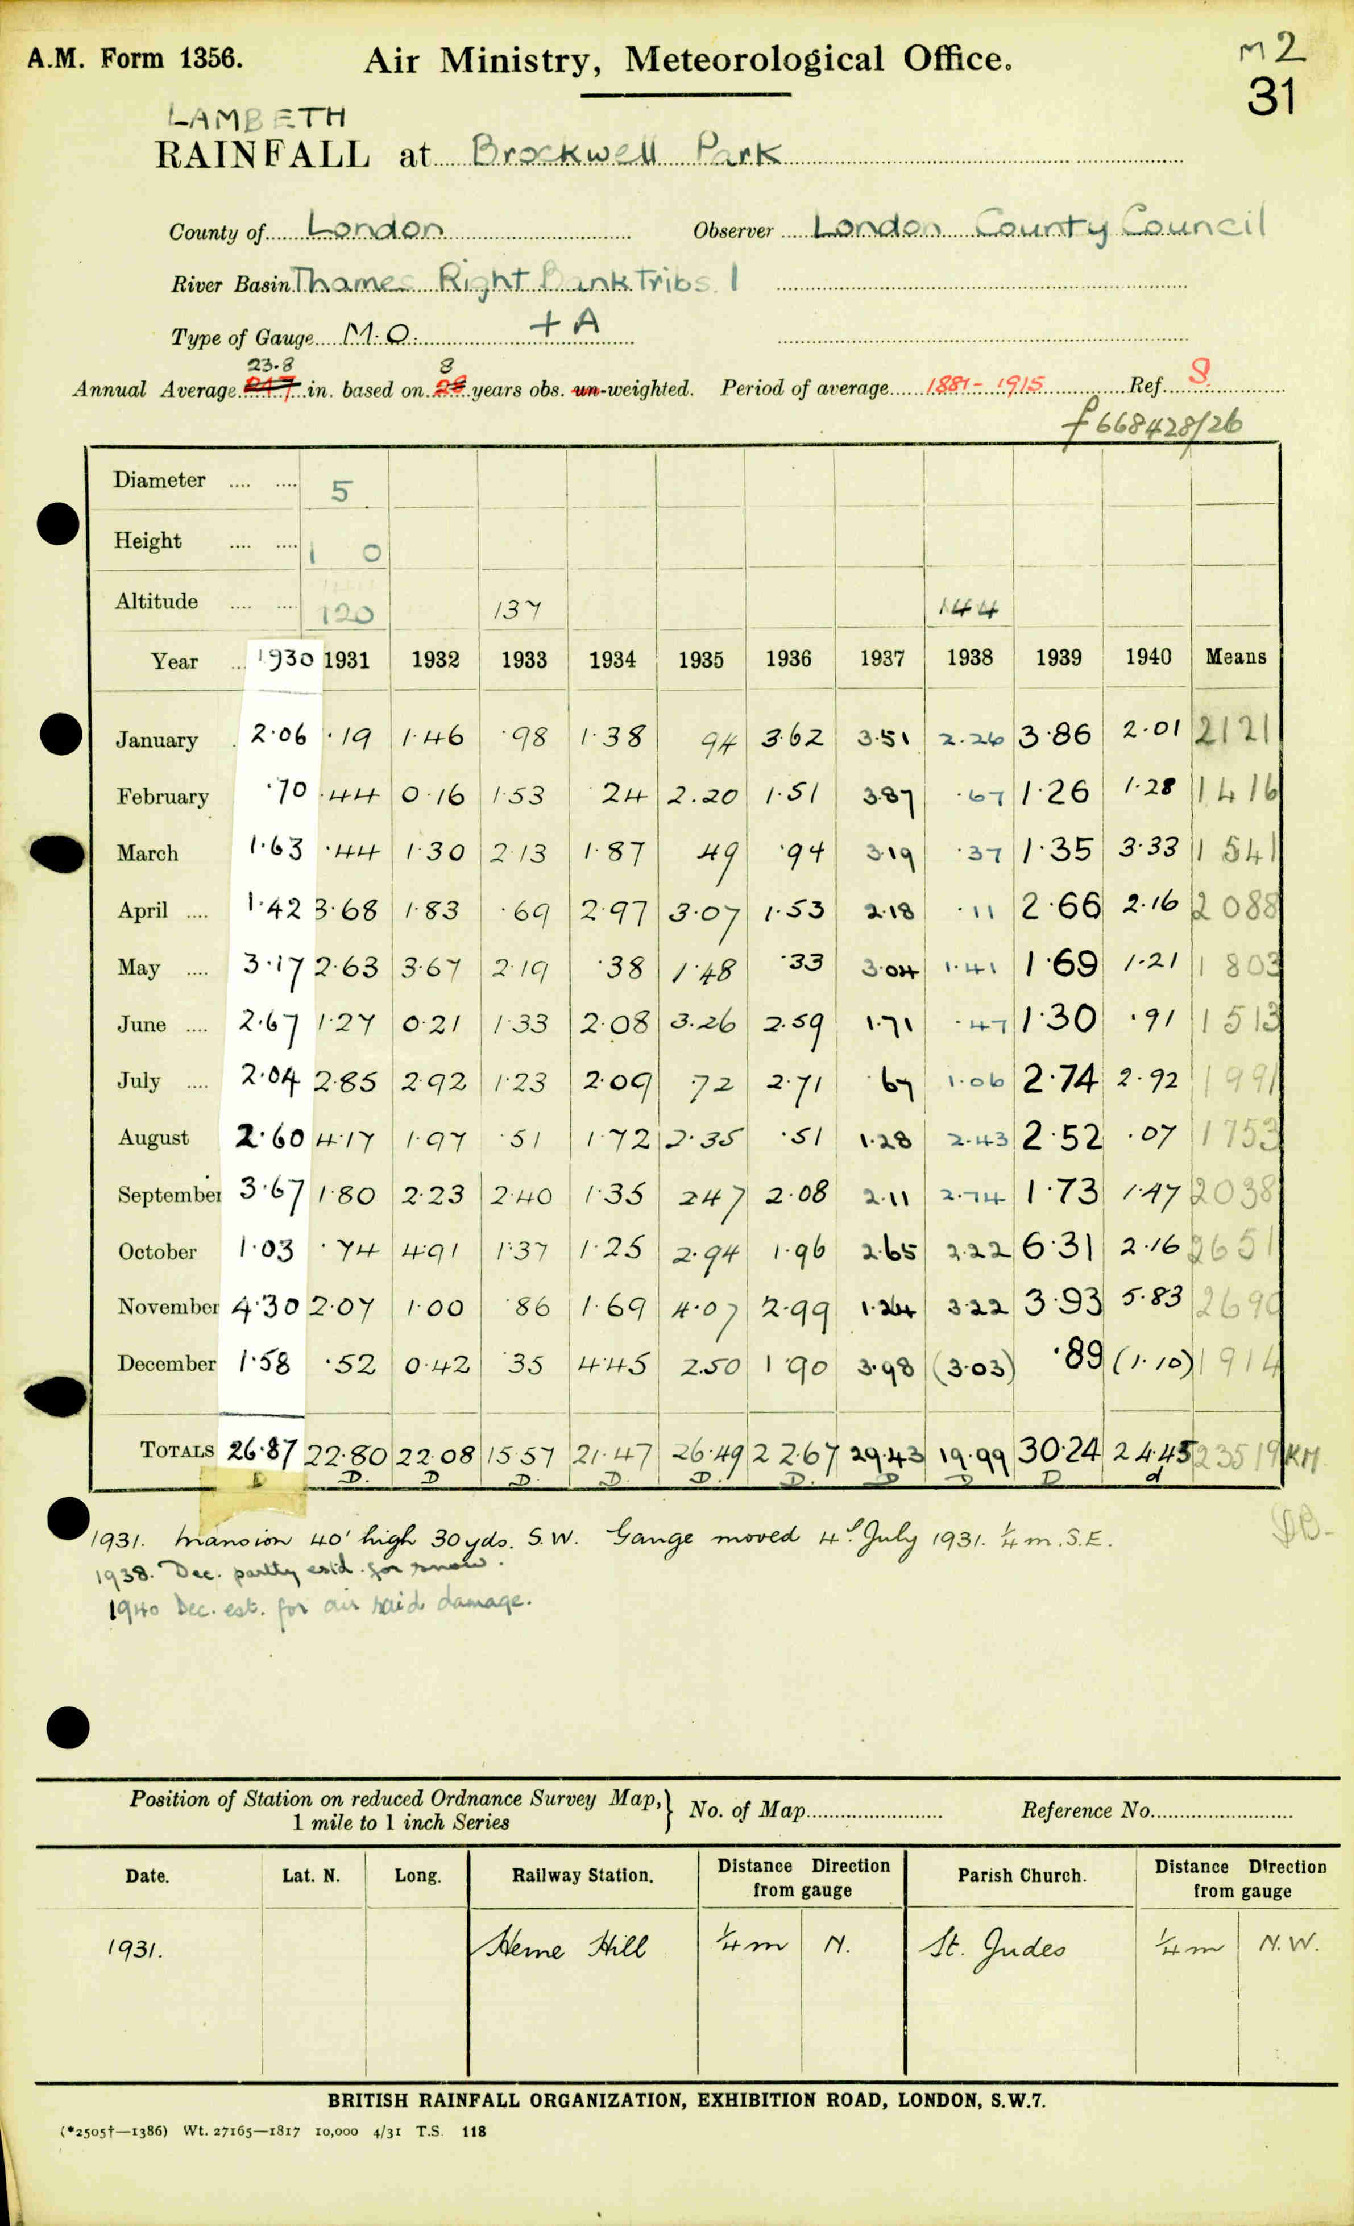 A.M. Form 1356. Air Ministry, Meteorological Office. M2
31
LAMBETH
RAINFALL at Brockwell Park
County of London Observer London County Council
River Basin Thames Right Bank Tribs 1
Type of Gauge M.O. + A
23.8 8
Annual Average 24.7 in. based on 28 years obs. un-weighted. Period of average 1881-1915 Ref. S.
f 668428/26
Diameter .... .... 5
Height .... .... 1 0
Altitude .... .... 120 137 144
Year 1930 1931 1932 1933 1934 1935 1936 1937 1938 1939 1940 Means
January 2.06 .19 1.46 .98 1.38 94 3.62 3.51 2.26 3.86 2.01 2121
February .70 .44 0.16 1.53 24 2.20 1.51 3.87 .67 1.26 1.28 1416
March 1.63 .44 1.30 2.13 1.87 49 .94 3.19 .37 1.35 3.33 1541
April .... 1.42 3.68 1.83 .69 2.97 3.07 1.53 2.18 .11 2.66 2.16 2088
May .... 3.17 2.63 3.67 2.19 .38 1.48 .33 3.04 1.41 1.69 1.21 1803
June .... 2.67 1.27 0.21 1.33 2.08 3.26 2.59 1.71 .47 1.30 .91 1513
July .... 2.04 2.85 2.92 1.23 2.09 .72 2.71 .67 1.06 2.74 2.92 1991
August 2.60 4.17 1.97 .51 1.72 2.35 .51 1.28 2.43 2.52 .07 1753
September 3.67 1.80 2.23 2.40 1.35 2.47 2.08 2.11 2.74 1.73 1.47 2038
October 1.03 .74 4.91 1.37 1.25 2.94 1.96 2.65 2.22 6.31 2.16 2651
November 4.30 2.07 1.00 .86 1.69 4.07 2.99 1.24 3.22 3.93 5.83 2690
December 1.58 .52 0.42 35 4.45 2.50 1.90 3.98 (3.03) .89 (1.10) 1914
TOTALS 26.87 22.80 22.08 15.57 21.47 26.49 22.67 29.43 19.99 30.24 24.45 23519 KM
D D. D D. D. D. D. D D D d
1931. Mansion 40' high 30 yds. S.W. Gauge moved 4th July 1931. ¼ m. S.E.
1938. Dec. partly estd. for snow.
1940 Dec. est. for air raid damage.
Position of Station on reduced Ordnance Survey Map, 1 mile to 1 inch Series } No. of Map Reference No.
Date. Lat. N. Long. Railway Station. Distance Direction from gauge Parish Church. Distance Direction from gauge
1931. Herne Hill ¼ m N. St. Judes ¼ m N.W.
BRITISH RAINFALL ORGANIZATION, EXHIBITION ROAD, LONDON, S.W.7.
(*2505†—1386) Wt. 27165—1817 10,000 4/31 T.S. 118